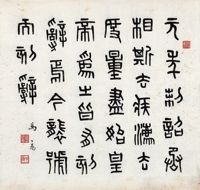 元年制詔丞
相斯去疾灋
度量盡始皇
帝爲之皆有刻
辭焉今襲號
而刻辭